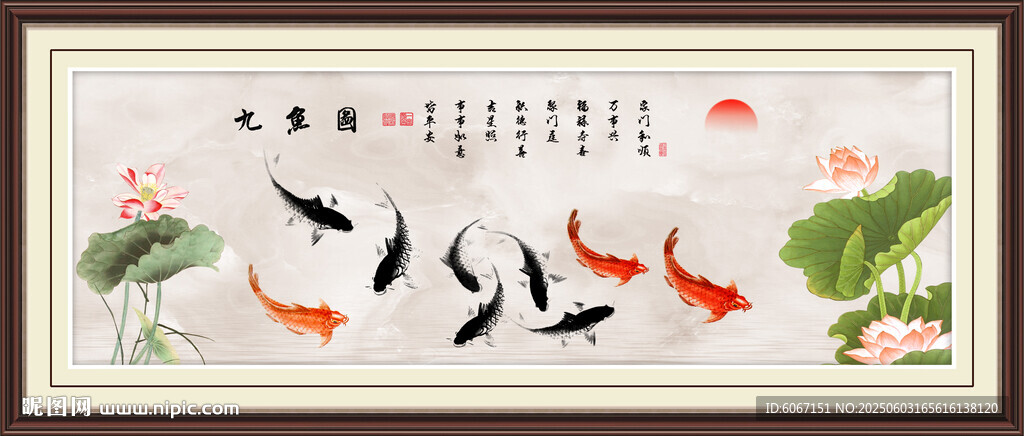 九魚圖
家门和顺
万事兴
福禄寿喜
聚门庭
积德行善
吉星照
事事如意
平安
昵图网 www.nipic.com
ID:6067151 NO:20250603165616138120